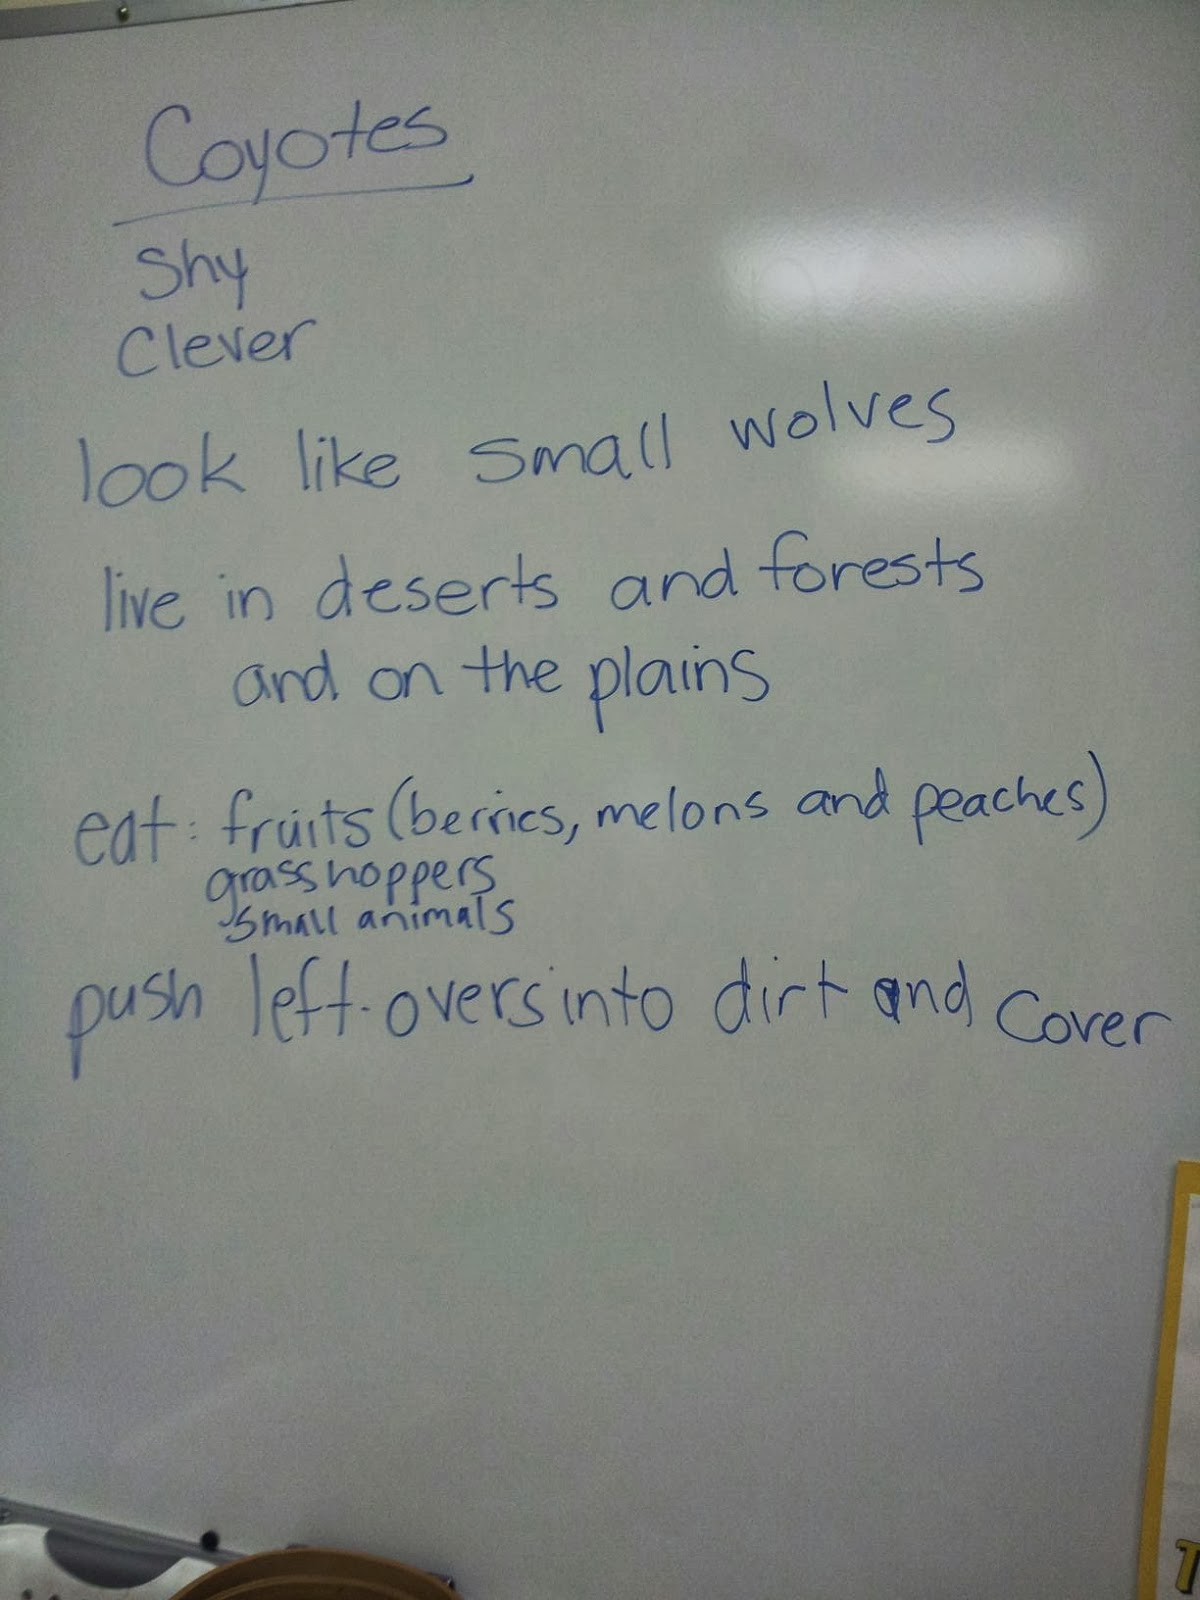 Coyotes
Shy
Clever
look like small wolves
live in deserts and forests
and on the plains
eat: fruits (berries, melons and peaches)
grasshoppers
small animals
push left-overs into dirt and cover
T